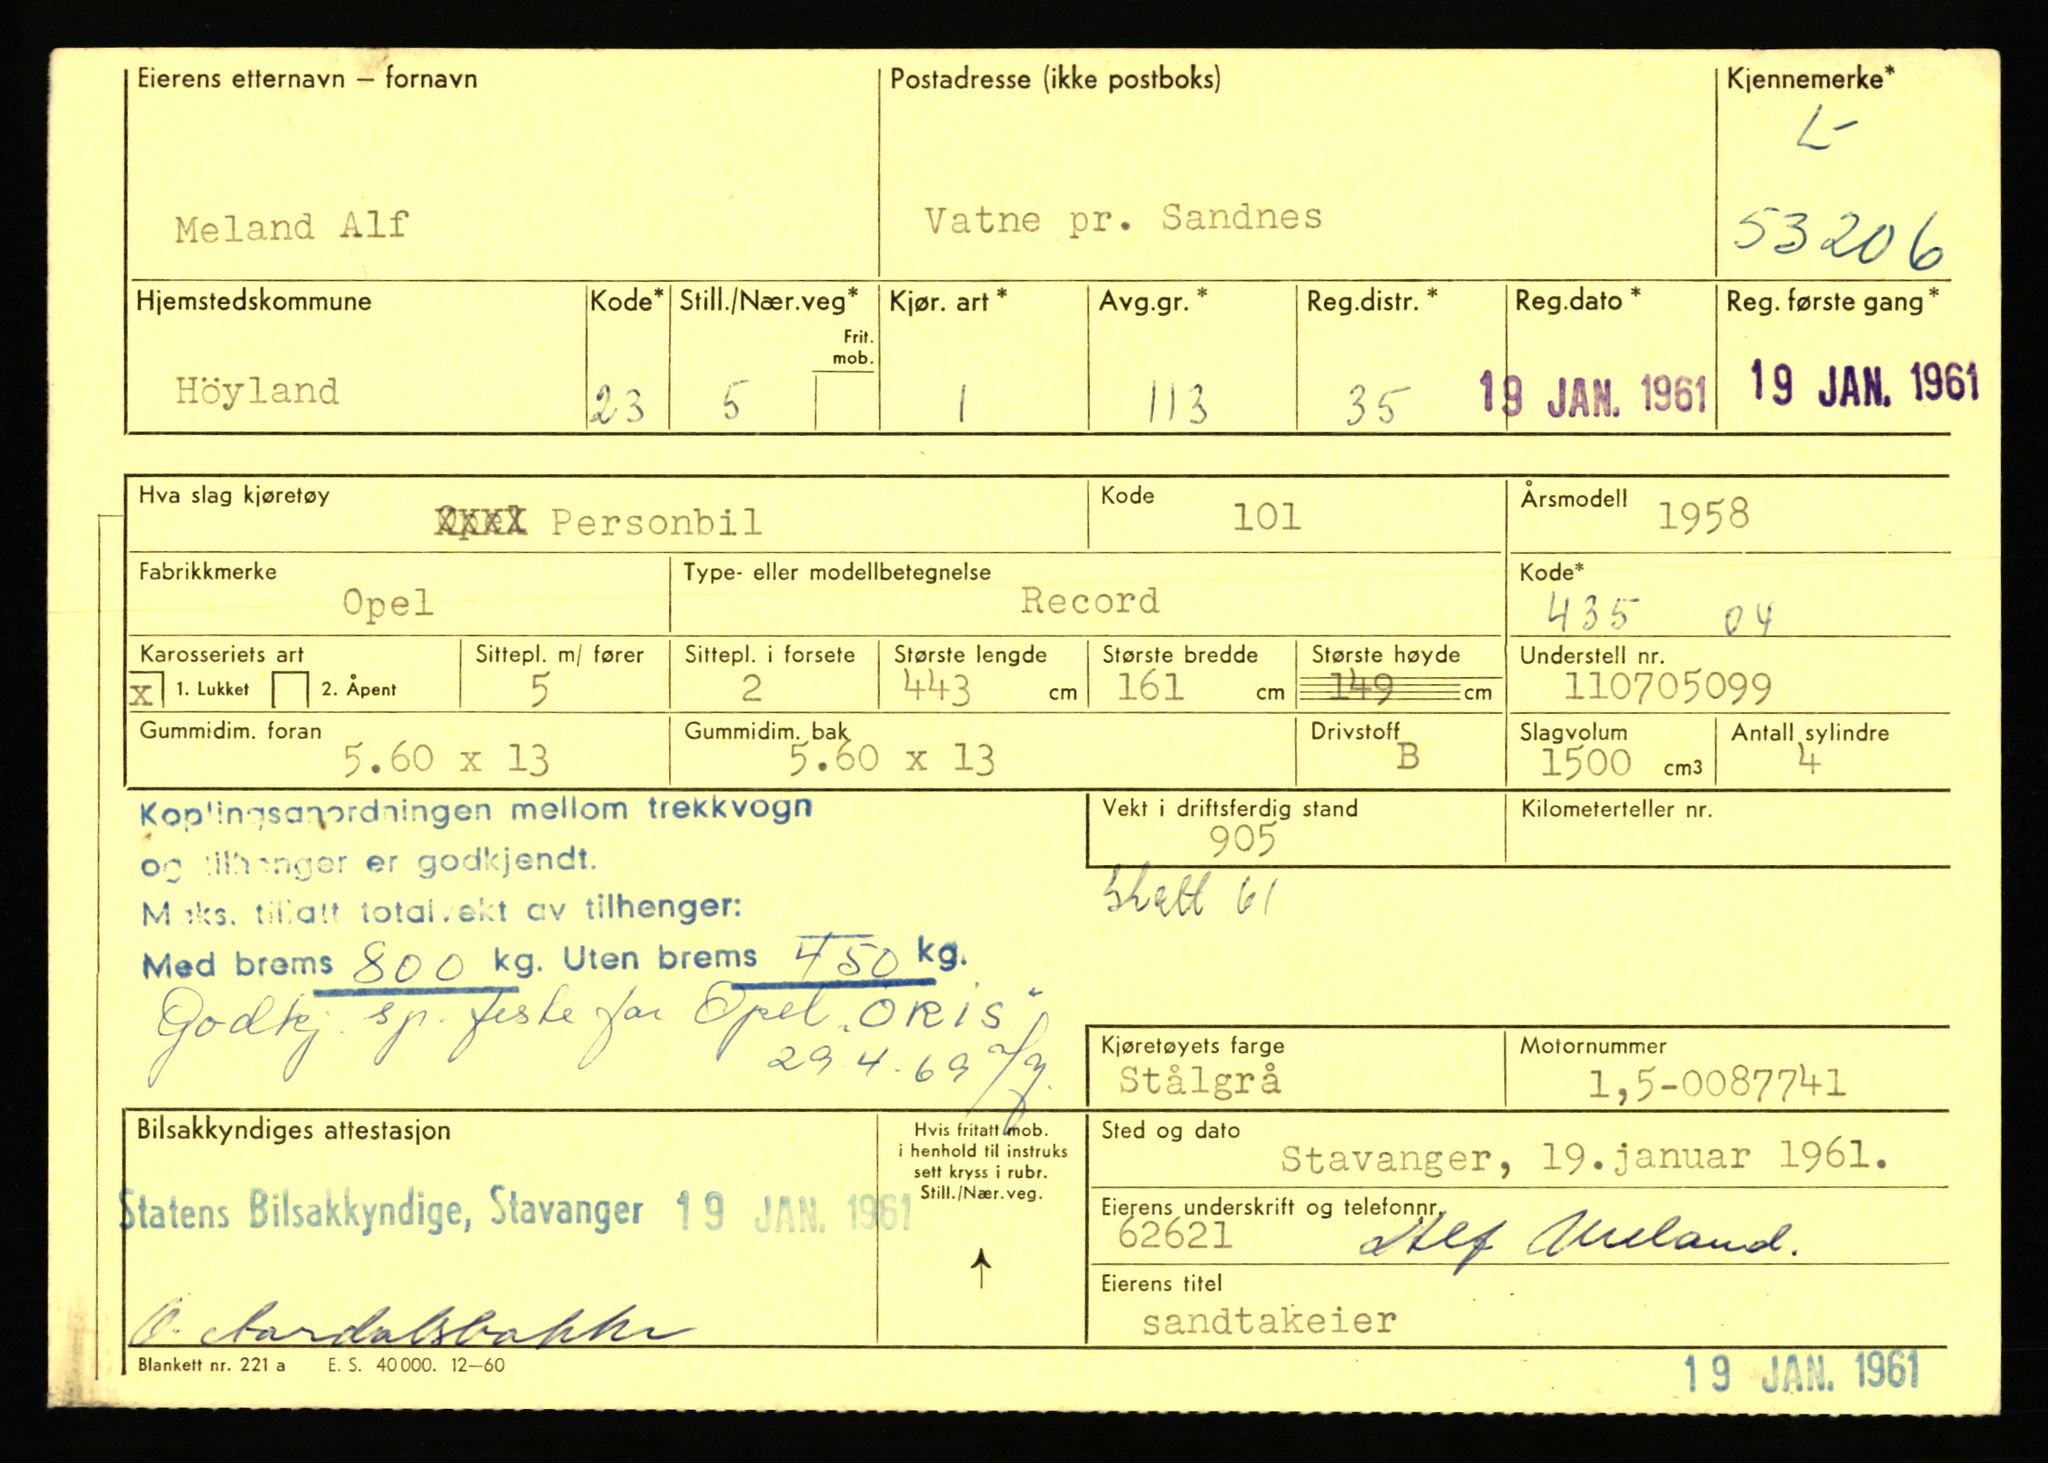 Eierens etternavn – fornavn
Postadresse (ikke postboks)
Kjennemerke*
L-
Meland Alf
Vatne pr. Sandnes
53206
Hjemstedskommune
Kode*
Still./Nær.veg*
Frit. mob.
Kjør. art*
Avg.gr.*
Reg.distr.*
Reg.dato*
Reg. første gang*
Höyland
23
5
1
113
35
19 JAN. 1961
19 JAN. 1961
Hva slag kjøretøy
Personbil
Kode
101
Årsmodell
1958
Fabrikkmerke
Opel
Type- eller modellbetegnelse
Record
Kode*
435 04
Karosseriets art
x 1. Lukket 2. Åpent
Sittepl. m/ fører
5
Sittepl. i forsete
2
Største lengde
443 cm
Største bredde
161 cm
Største høyde
149 cm
Understell nr.
110705099
Gummidim. foran
5.60 x 13
Gummidim. bak
5.60 x 13
Drivstoff
B
Slagvolum
1500 cm3
Antall sylindre
4
Koplingsanordningen mellom trekkvogn
og tilhenger er godkjendt.
Maks. tillatt totalvekt av tilhenger:
Med brems 800 kg. Uten brems 450 kg.
Godkj. sp. feste for Opel „ORIS"
29.4.69
Vekt i driftsferdig stand
905
Kilometerteller nr.
Skatt 61
Kjøretøyets farge
Stålgrå
Motornummer
1,5-0087741
Bilsakkyndiges attestasjon
Statens Bilsakkyndige, Stavanger 19 JAN. 1961
Hvis fritatt mob.
i henhold til instruks
sett kryss i rubr.
Still./Nær.veg.
Sted og dato
Stavanger, 19.januar 1961.
Eierens underskrift og telefonnr.
62621 Alf Meland.
Eierens titel
sandtakeier
Blankett nr. 221 a E. S. 40 000. 12–60
19 JAN. 1961